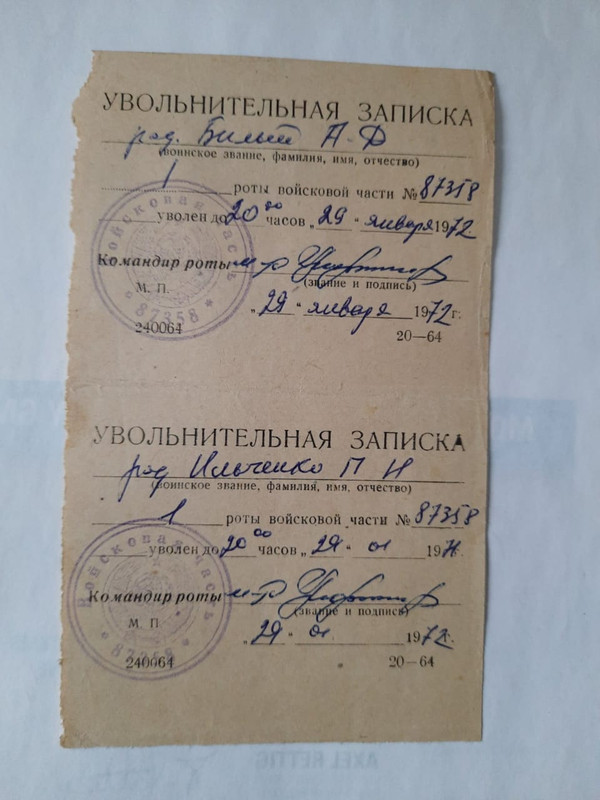 УВОЛЬНИТЕЛЬНАЯ ЗАПИСКА
ряд. Билый А-Д
(воинское звание, фамилия, имя, отчество)
1 роты войсковой части № 87358
уволен до 20 00 часов „29“ января 1972
Командир роты м-р
(звание и подпись)
М. П.
„29“ января 1972 г.
240064 20—64
Войсковая часть * 87358 *
УВОЛЬНИТЕЛЬНАЯ ЗАПИСКА
ряд Ильченко П Н
(воинское звание, фамилия, имя, отчество)
1 роты войсковой части № 87358
уволен до 20 00 часов „29“ 01 197
Командир роты м-р
(звание и подпись)
М. П
„29“ 01 1972 г.
240064 20—64
Войсковая часть * 87358 *
AXEL RETTIG